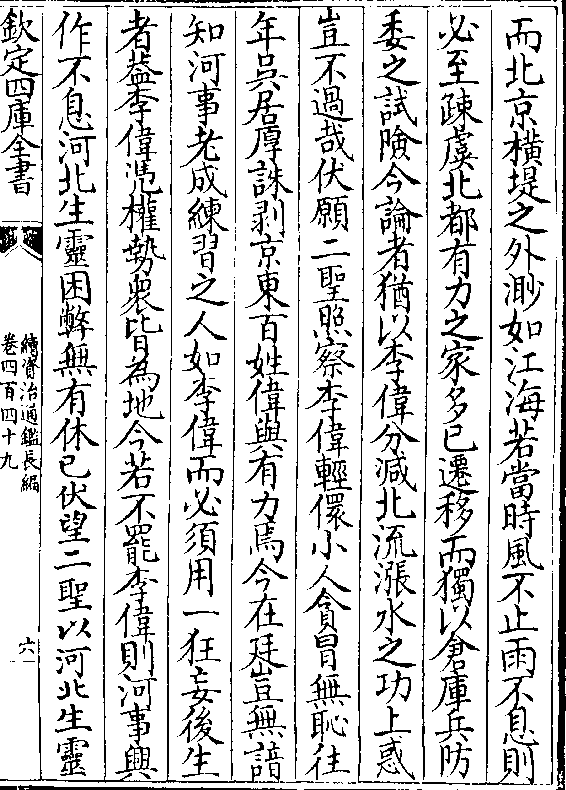 而北京橫堤之外渺如江海若當時風不止雨不息則
必至疎虞北都有力之家多已遷移而獨以倉庫兵防
委之試險今論者猶以李偉分減北流漲水之功上惑
豈不過哉伏願二聖照察李偉輕儇小人貪冒無恥往
年吳居厚誅剥京東百姓偉與有力焉今在廷豈無諳
知河事老成練習之人如李偉而必須用一狂妄後生
者葢李偉凴權勢衆皆為地今若不罷李偉則河事興
作不息河北生靈困弊無有休已伏望二聖以河北生靈
欽定四庫全書
續資治通鑑長編
卷四百四十九
六